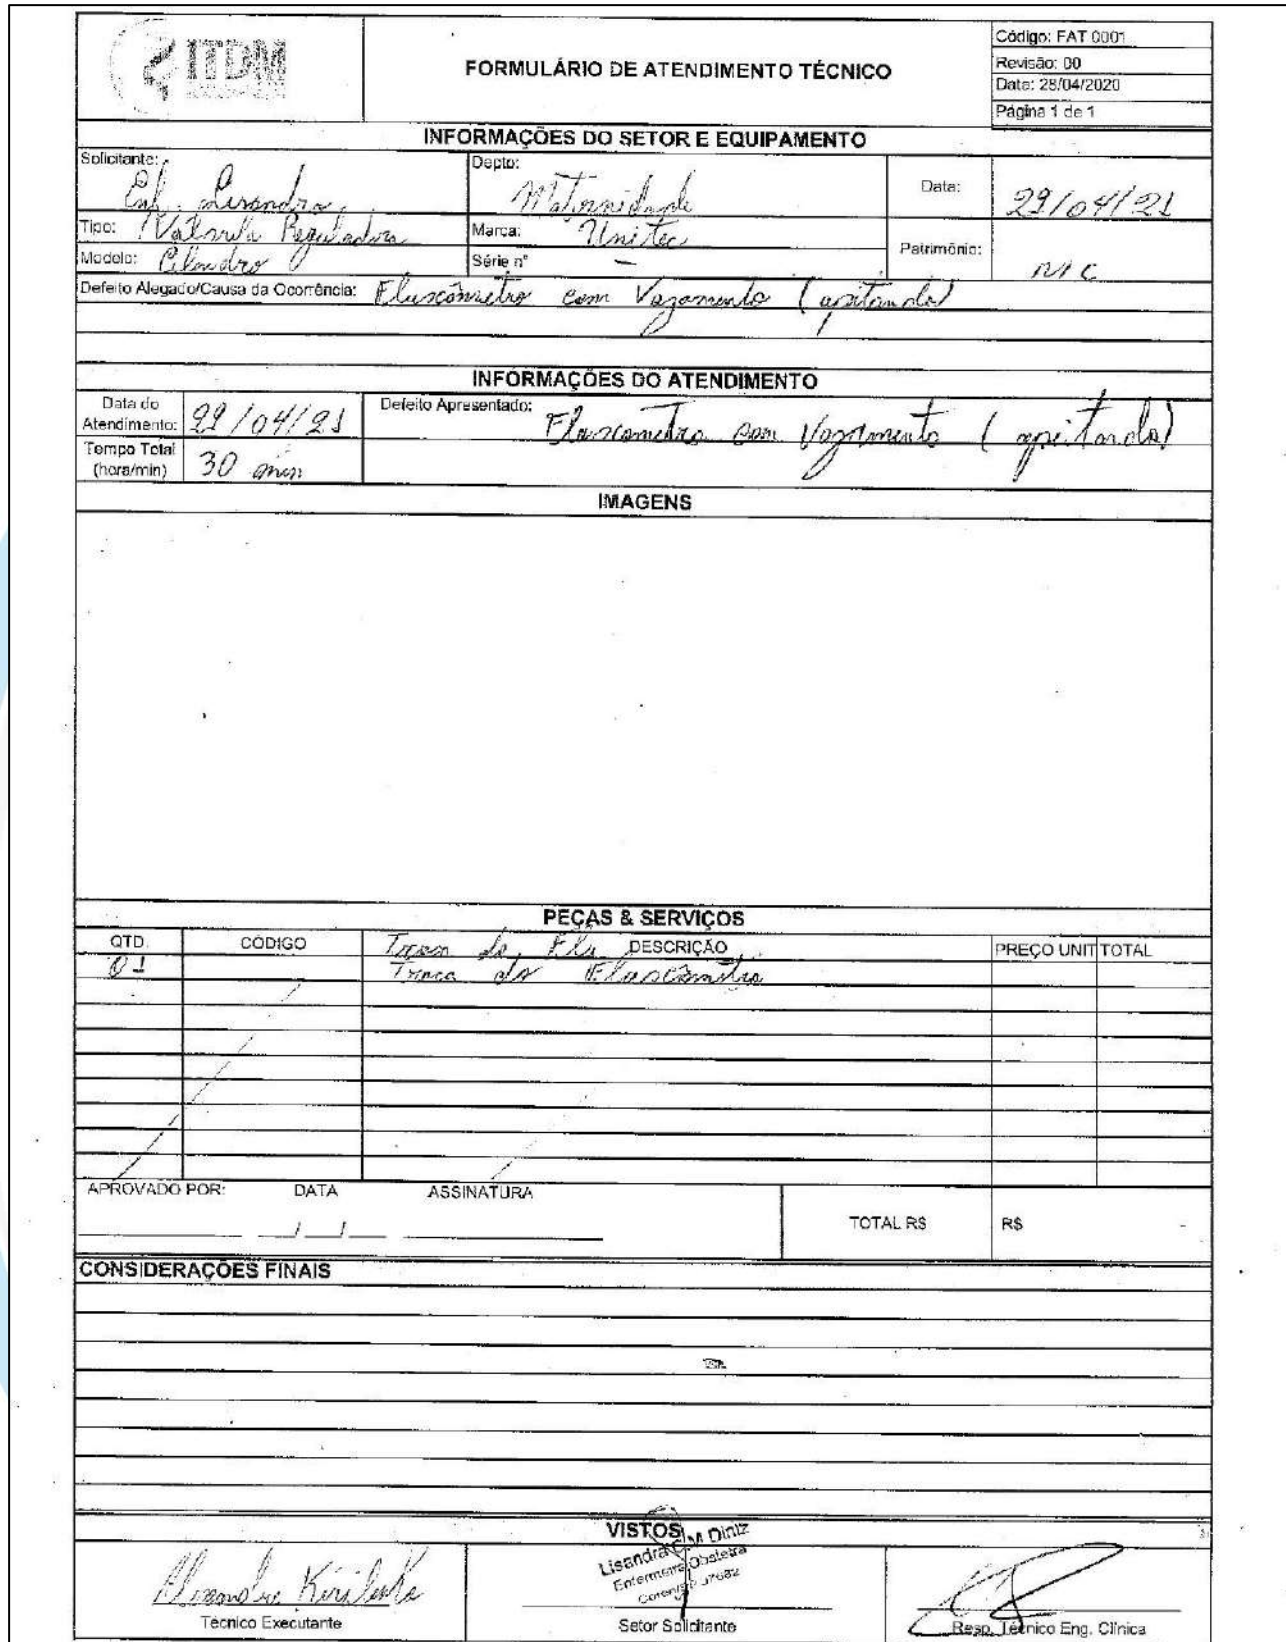 ITDM
FORMULÁRIO DE ATENDIMENTO TÉCNICO
Código: FAT 0001
Revisão: 00
Data: 28/04/2020
Página 1 de 1
INFORMAÇÕES DO SETOR E EQUIPAMENTO
Solicitante: Enf. Lisandra
Depto: Maternidade
Data: 29/04/21
Tipo: Valvula Reguladora
Marca: Unitec
Patrimônio: N/C
Modelo: Cilindro
Série nº –
Defeito Alegado/Causa da Ocorrência: Fluxômetro com Vazamento (apitando)
INFORMAÇÕES DO ATENDIMENTO
Data do Atendimento: 29/04/21
Defeito Apresentado: Fluxometro com Vazamento (apitando)
Tempo Total (hora/min) 30 min
IMAGENS
PEÇAS & SERVIÇOS
QTD. CÓDIGO DESCRIÇÃO PREÇO UNIT TOTAL
01 Troca do Fluxômetro
APROVADO POR: DATA ASSINATURA
/ /
TOTAL R$ R$ -
CONSIDERAÇÕES FINAIS
VISTOS
Lisandra C. M Diniz
Enfermeira Obstetra
Coren/SP
Alexandre Kirilenko
Técnico Executante
Setor Solicitante
Resp. Técnico Eng. Clínica